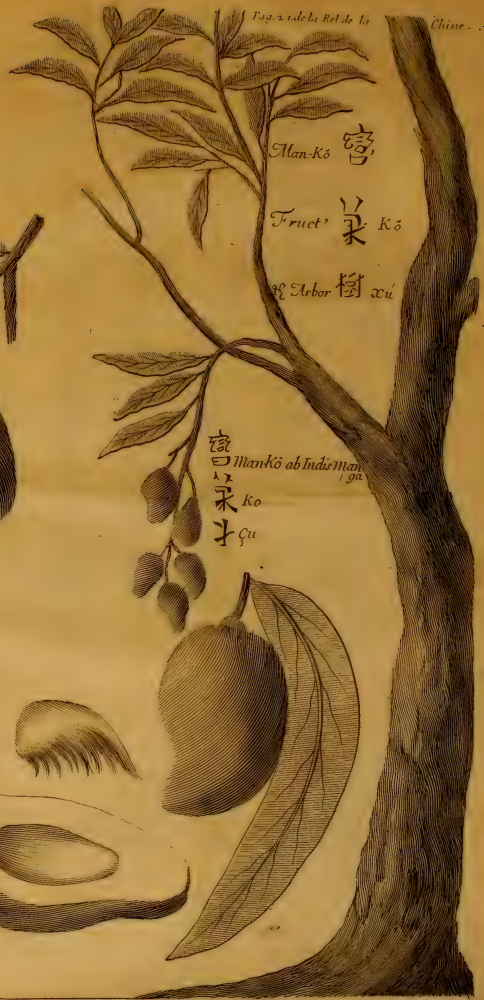 Pag. 21 de la Rel de la Chine.
Man-Kō
Fruct' 菓 Kō
& Arbor 樹 xú
Man-Kō ab Indis Man
ga
菓 Ko
Çu